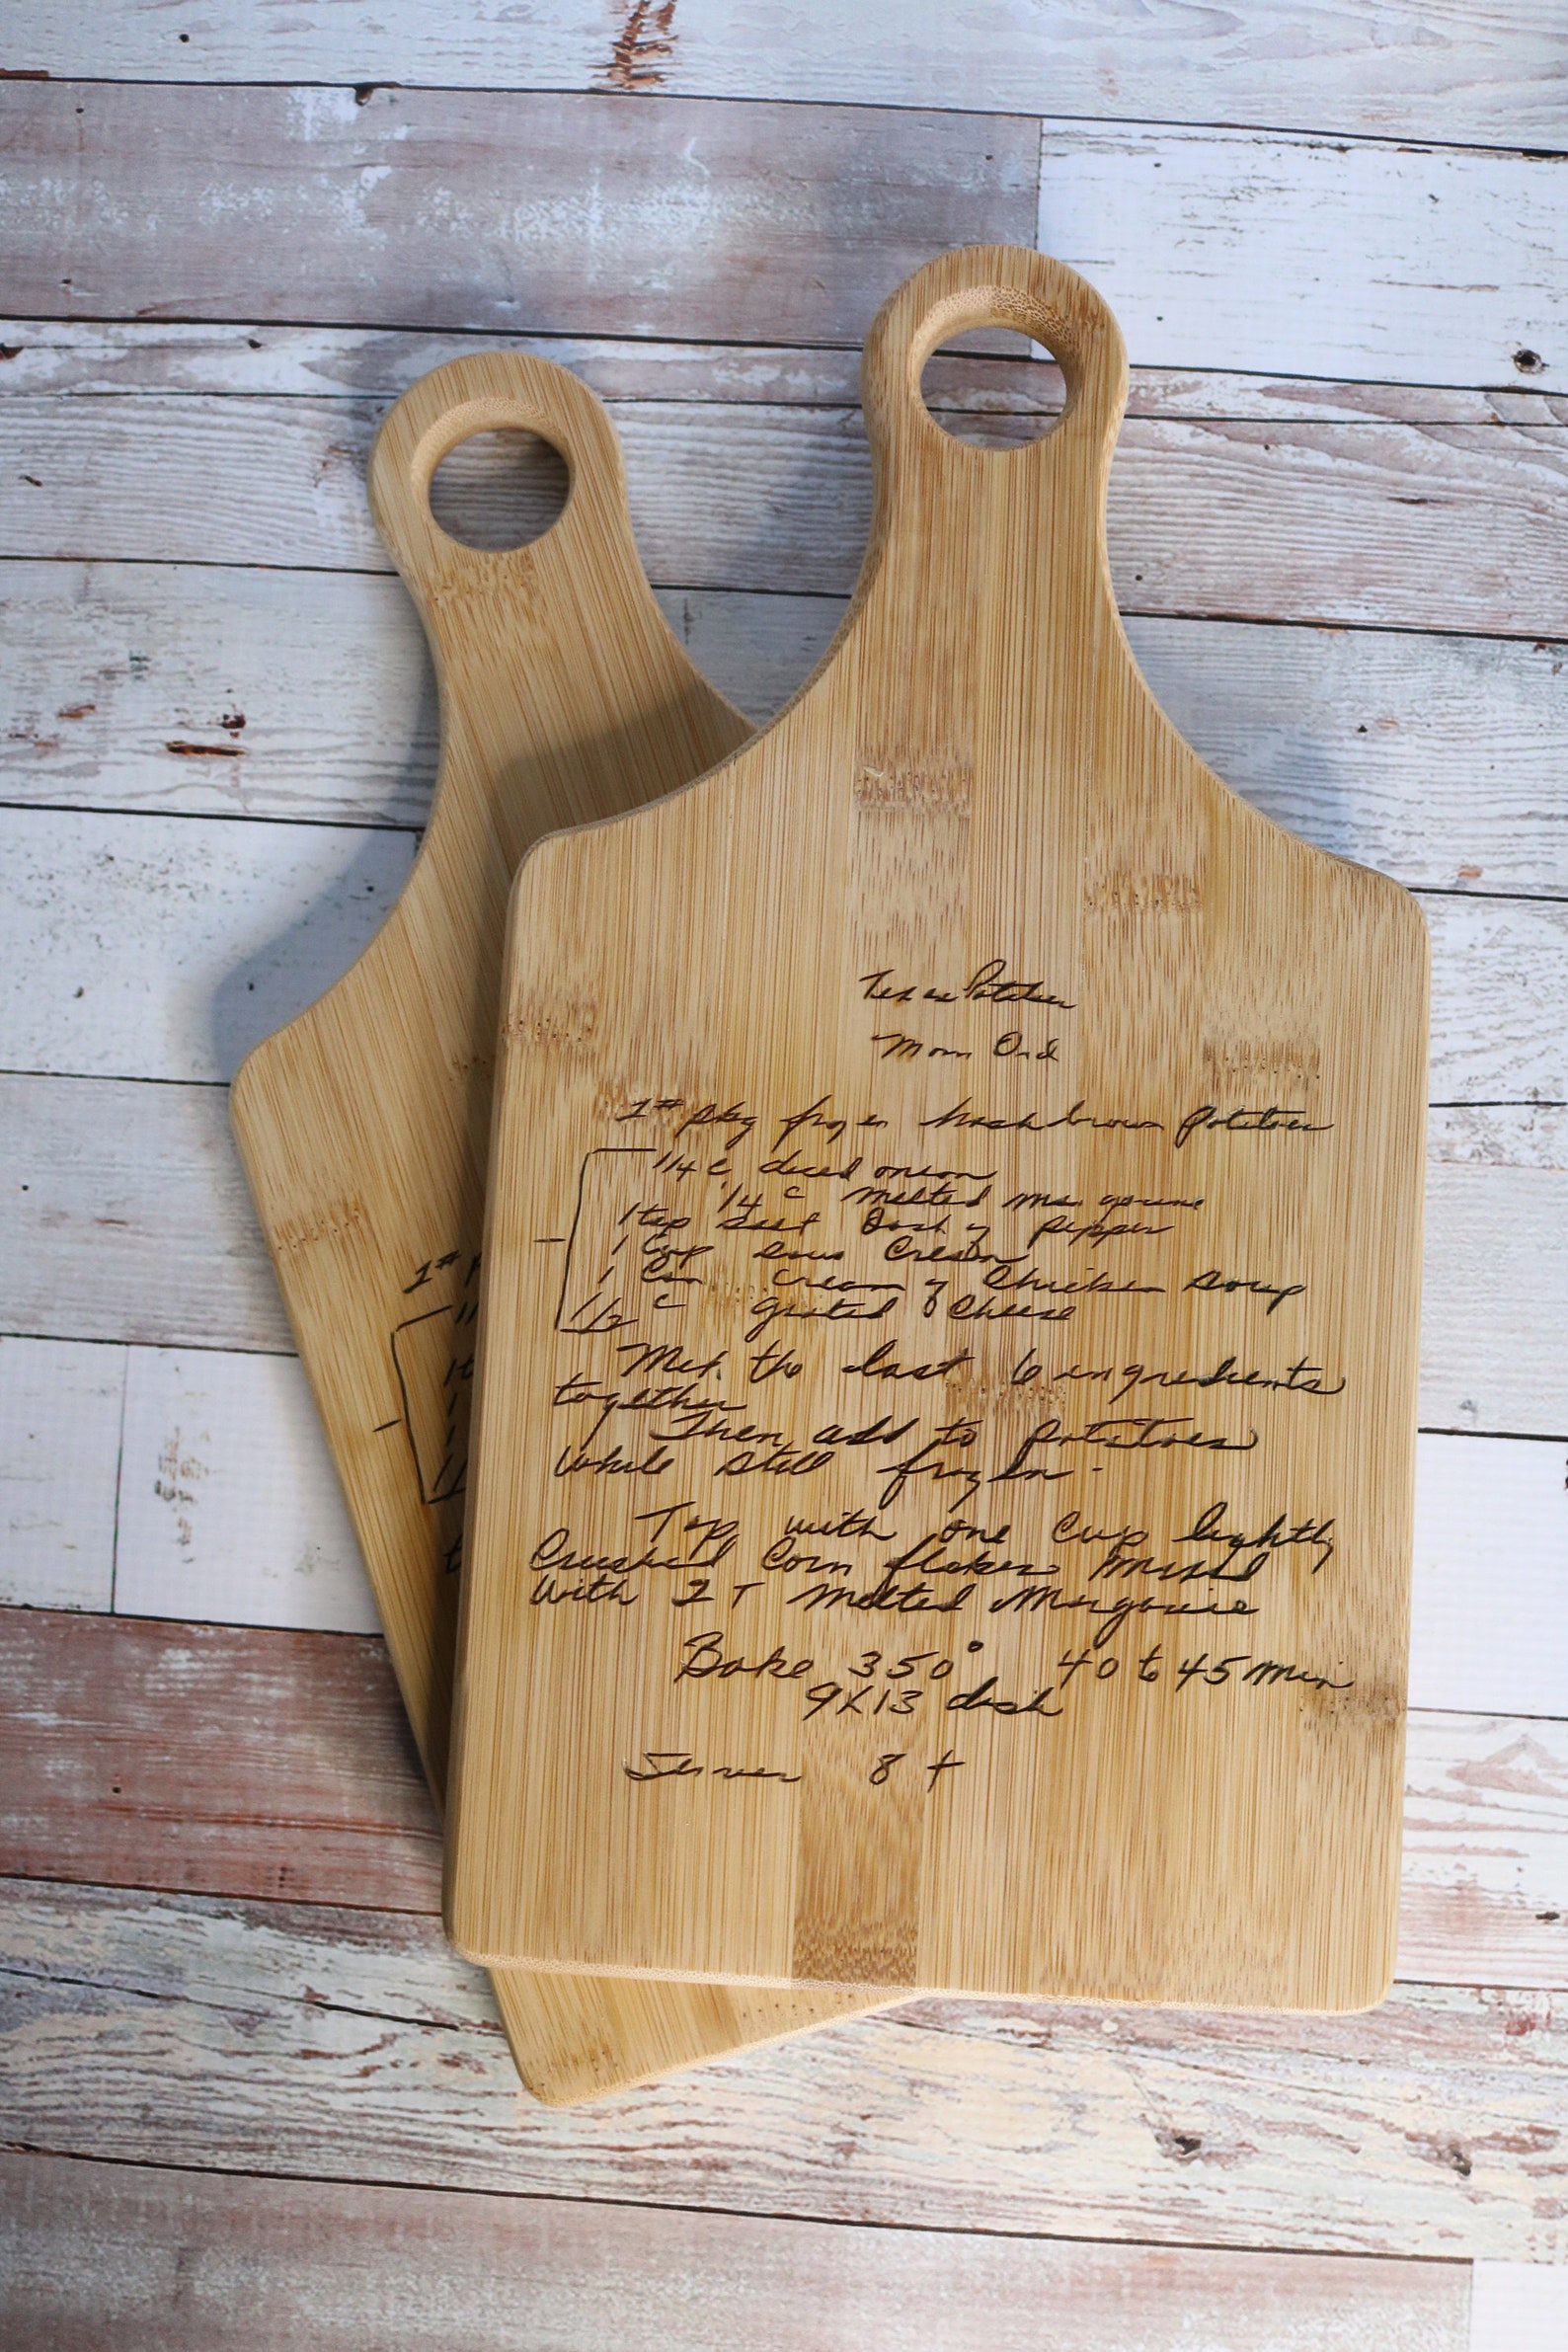 Texas Potatoes
Mom Ord
1# pkg frozen hashbrown potatoes
1/4 c diced onion
1/4 c melted margarine
1 tsp salt Dash of pepper
1 Cup sour Cream
1 Can cream of Chicken soup
1/2 c grated Cheese
Mix the last 6 ingredients
together
Then add to potatoes
while still frozen.
Top with one Cup lightly
Crushed Corn flakes mixed
with 2 T melted Margarine
Bake 350° 40 to 45 min
9X13 dish
Serves 8 +
1#
1
1